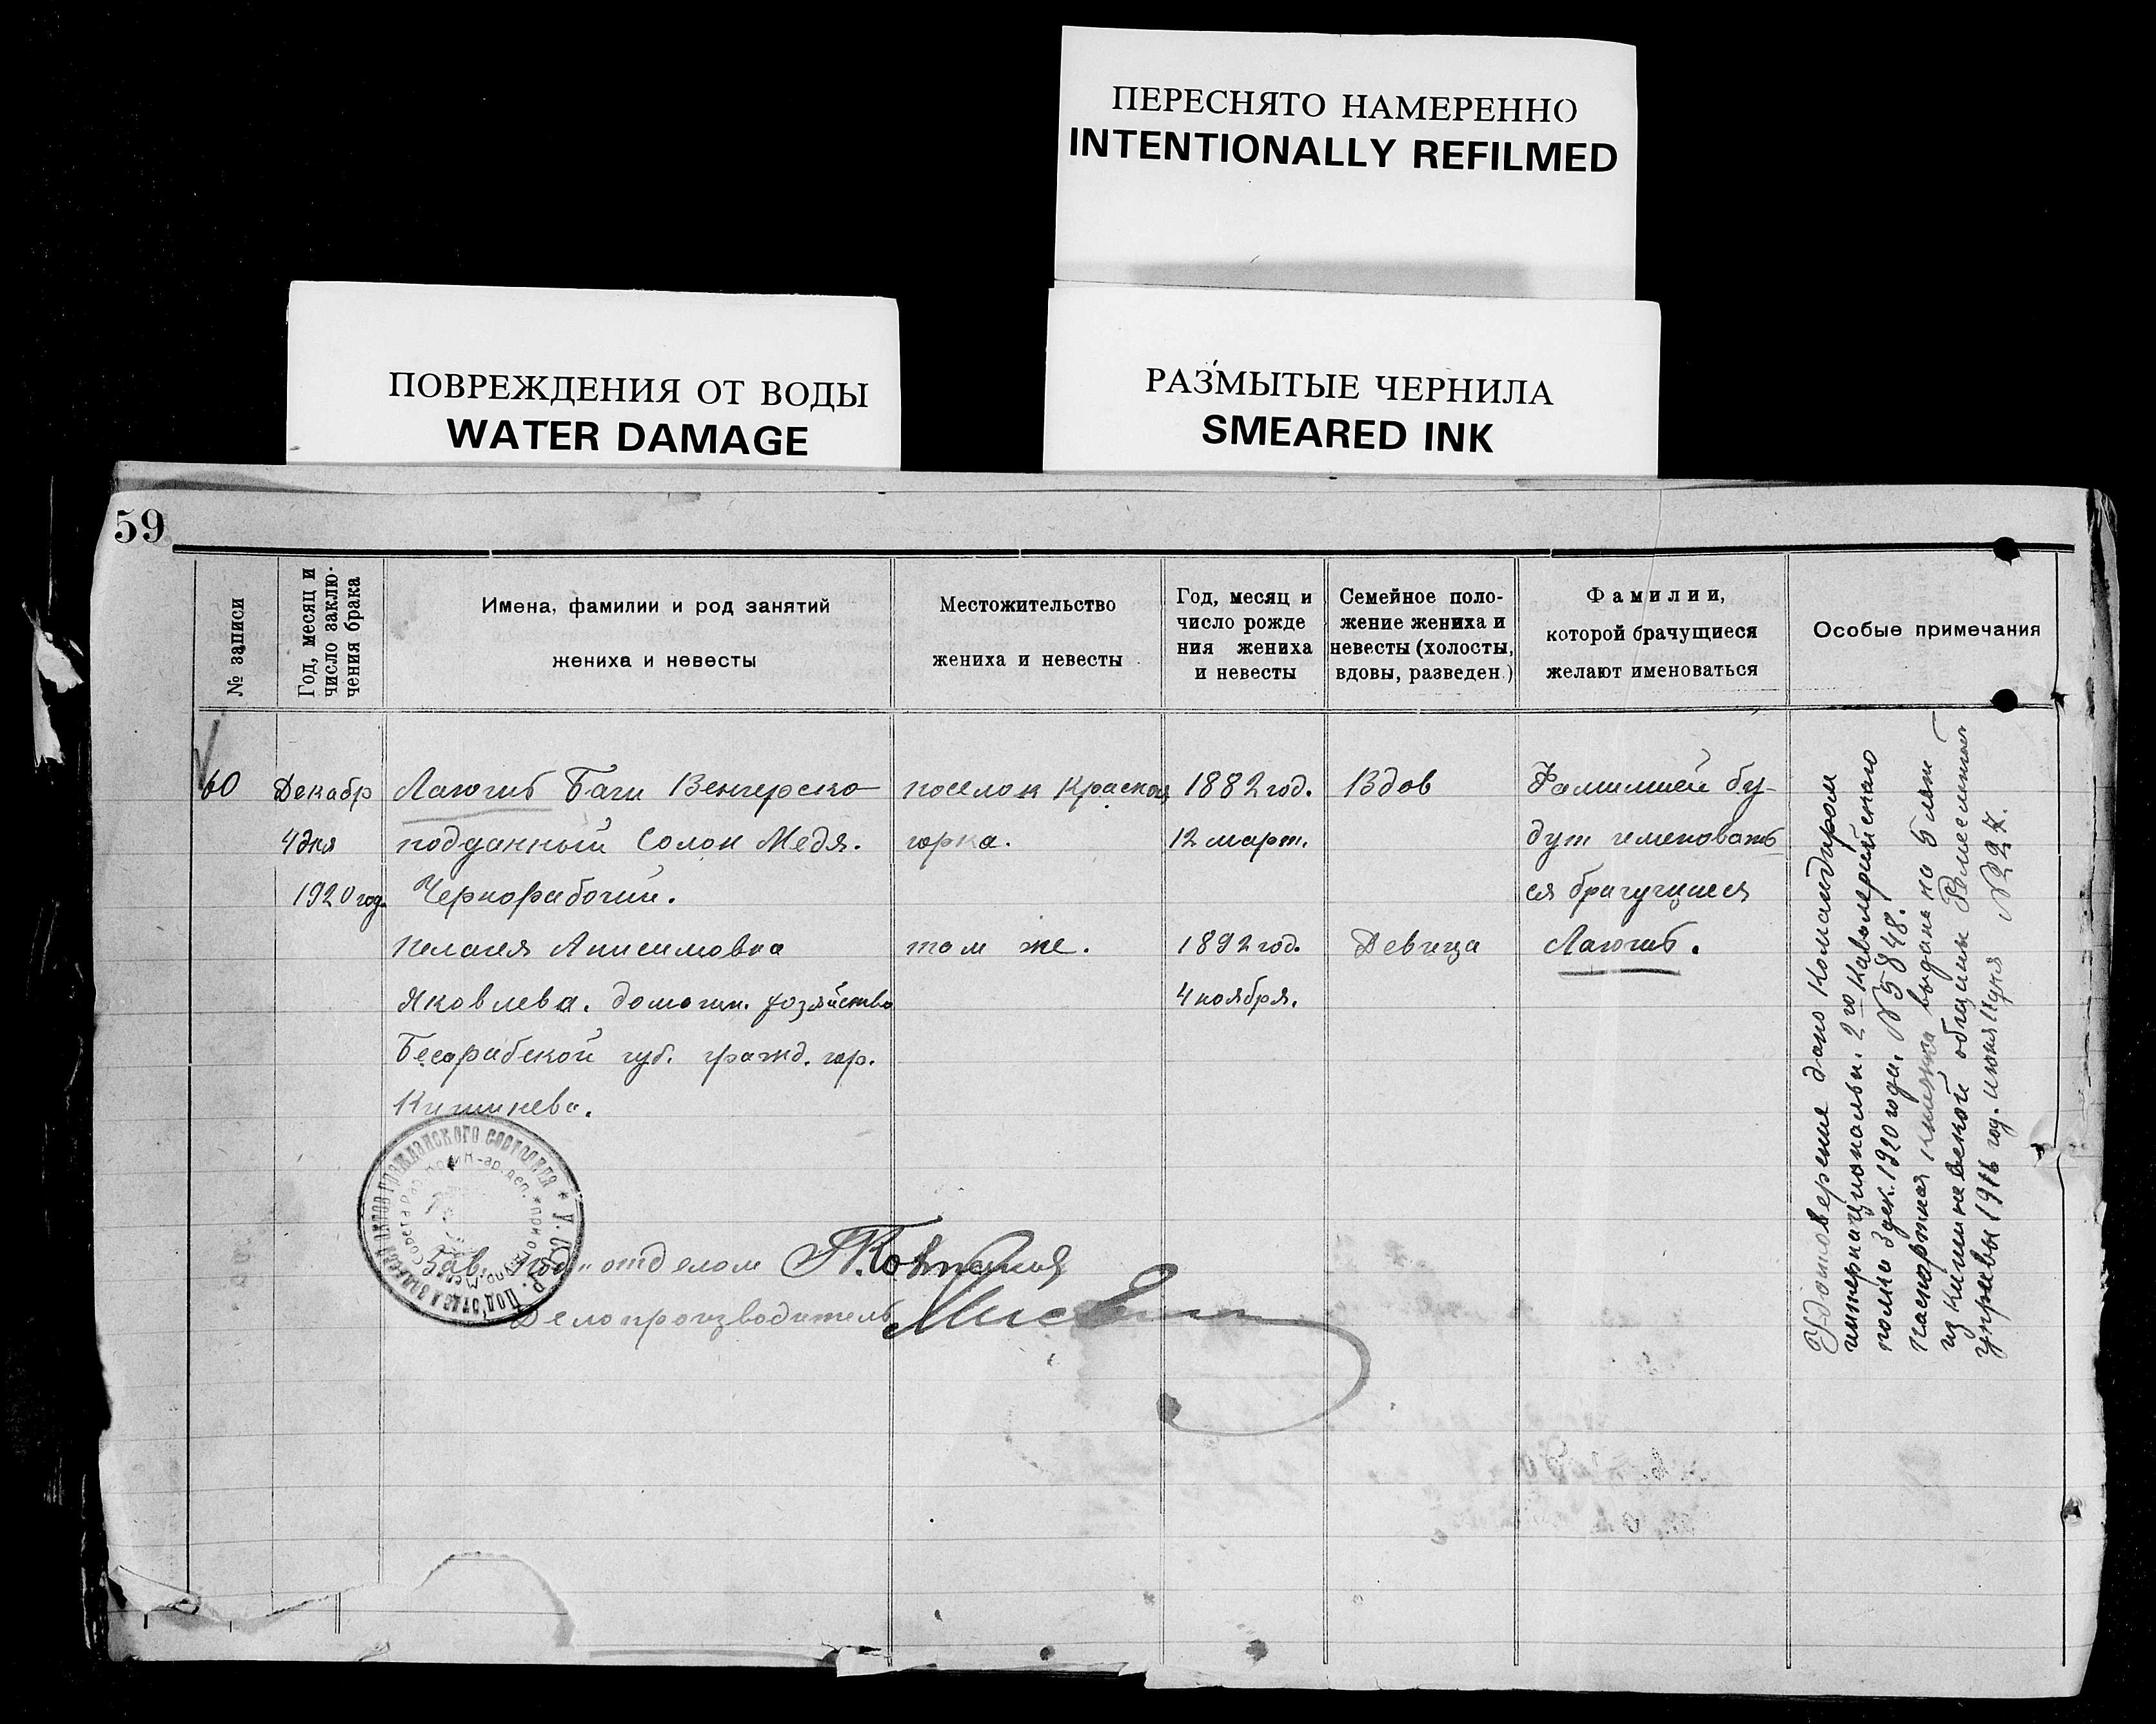 ПЕРЕСНЯТО НАМЕРЕННО
INTENTIONALLY REFILMED
ПОВРЕЖДЕНИЯ ОТ ВОДЫ
WATER DAMAGE
РАЗМЫТЫЕ ЧЕРНИЛА
SMEARED INK
59
№ записи
Год, месяц и
число заклю-
чения брака
Имена, фамилии и род занятий
жениха и невесты
Местожительство
жениха и невесты
Год, месяц и
число рожде
ния жениха
и невесты
Семейное поло-
жение жениха и
невесты (холосты,
вдовы, разведен.)
Фамилии,
которой брачущиеся
желают именоваться
Особые примечания
60
Декабр
4 дня
1920 год.
Лагоиб Баги Венгерско
подданный Солон Медя.
Чернорабочий.
Пелагея Анисимовна
Яковлева. домашн. хозяйство
Бесарабской губ. гражд. гор.
Кишинева.
поселок Красная
горка.
там же.
1882 год.
12 март.
1892 год.
4 ноября.
Вдов
Девица
Фамилией бу-
дут именоват
ся брачущиеся
Лагоиб.
Удостоверение дано Командиром
интернациональн. 2го Кавалерийского
полка 3 дек. 1920 года. № 5848.
Паспортная книжка выдана на 5 лет
из кишиневской общины Ремесленной
управы 1916 год. июня № 227.
Зав. под. отделом
Делопроизводитель